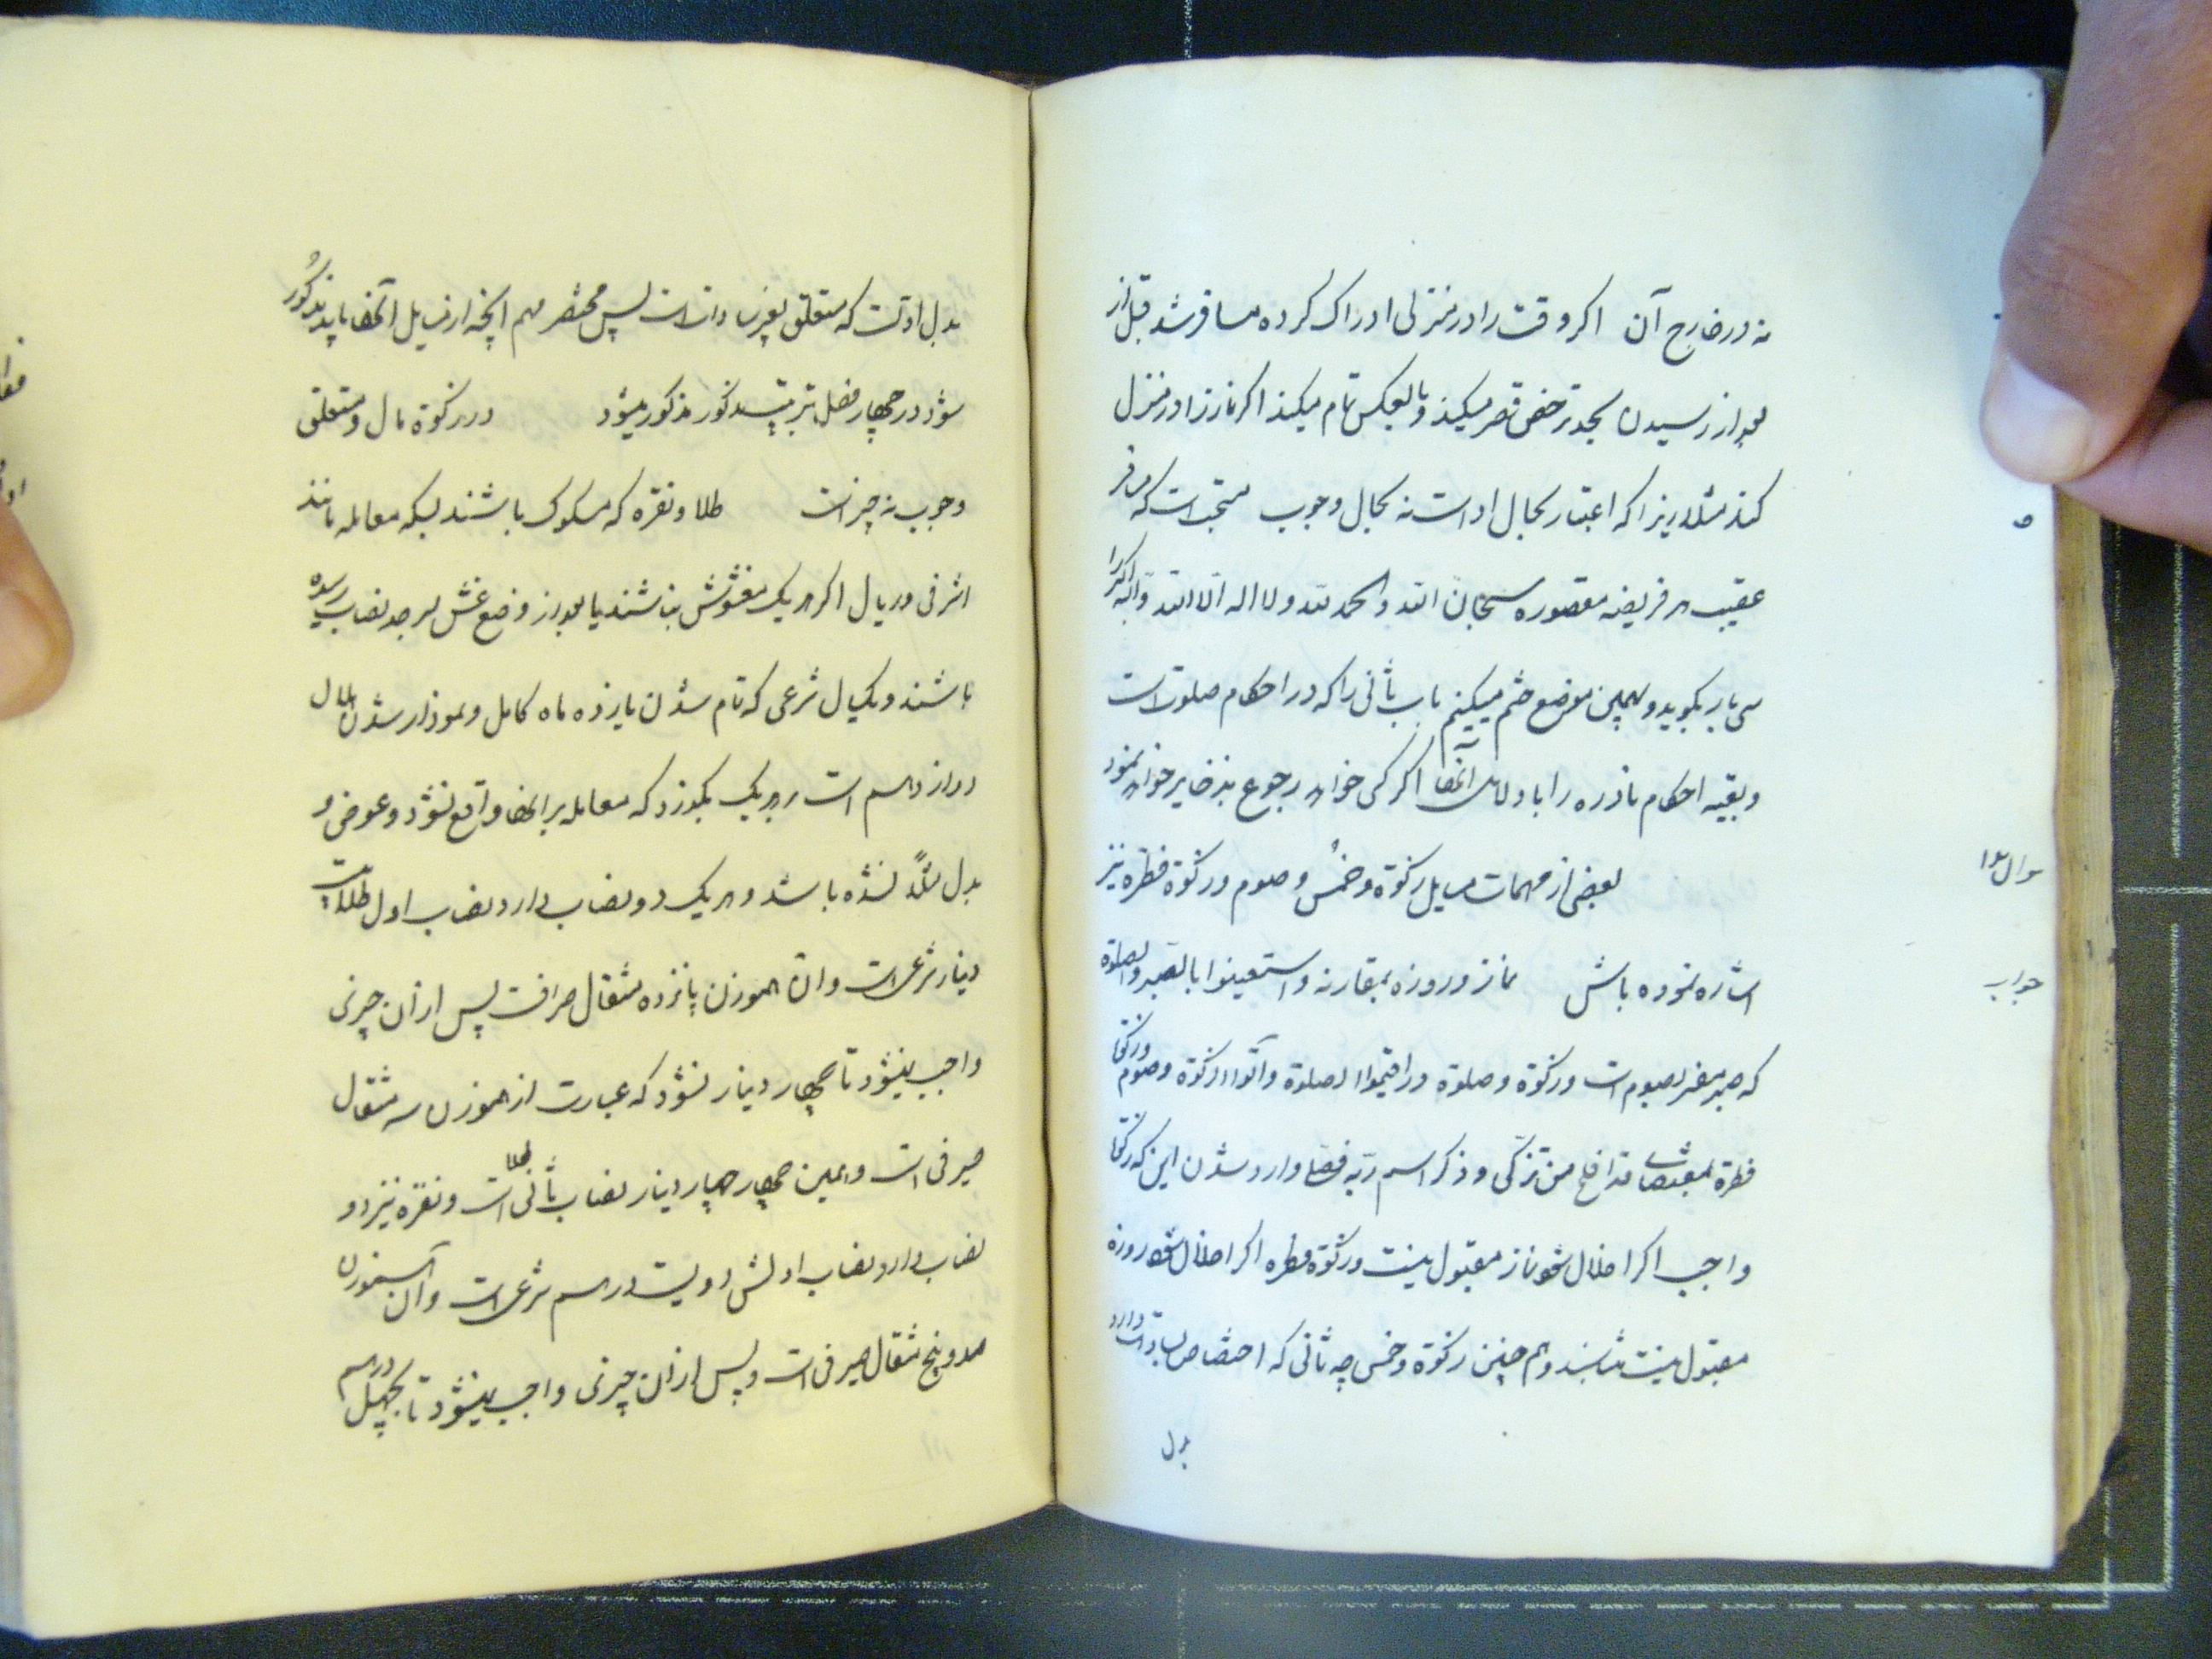 نه در خارج آن اکر وقت را در منزلی ادراک کرده مسافر شد قبل از
بعد از رسیدن بحد ترخص قصر میکند و بالعکس تمام میکند اکر نماز را در منزل
کند مثلا زیرا که اعتبار بحال ادا است نه بحال وجوب مستحب است که مسافر
عقیب هر فریضه مقصوره سبحان الله والحمد لله ولا اله الا الله والله اکبر را
سی بار بکوید و بهمین موضع ختم میکنیم باب ثانی را که در احکام صلوة است
و بقیه احکام نادره را با دلایل آنها اکر کسی خواهد رجوع بذخایر خواهد نمود
سؤال
بعضی از مهمات مسایل زکوة و خمس و صوم و زکوة فطره نیز
جواب
اشاره نموده باش نماز و روزه بمقارنه واستعینوا بالصبر والصلوة
که صبر مفسر بصوم است و زکوة و صلوة در اقیموا الصلوة وآتوا الزکوة و صوم و زکوة
فطره بمقتضای قد افلح من تزکی وذکر اسم ربه فصلی وارد شدن این که زکوة
واجب اکر اخلال شود نماز مقبول نیست و زکوة فطره اکر اخلال شود روزه
مقبول نیست مثابند و هم چنین زکوة و خمس چه ثانی که اختصاص بسادات دارد
بدل
بدل اول است که متعلق بغیر سادات است پس مختصر مهم آنچه از مسایل آنها باید مذکور
شود در چهار فصل بترتیب مذکور مذکور میشود در زکوة مال و متعلق
وجوب نه چیز است طلا و نقره که مسکوک باشند بسکه معامله مانند
اشرفی و ریال اکر هر یک مغشوش نباشند یا بعد از وضع غش بحد نصاب رسیده
باشند و یکسال شرعی که تمام شدن یازده ماه کامل و نمودار شدن هلال
دوازدهم است بر هر یک بکذرد که معامله بر آنها واقع نشود و عوض و
بدل مثلاً نشده باشد و هر یک دو نصاب دارد نصاب اول طلا بیست
دینار شرعی است و آن هموزن پانزده مثقال صرافست پس از آن چیزی
واجب نمیشود تا چهار دینار نشود که عبارت از هموزن سه مثقال
صیرفی است و همین چهار چهار دینار نصاب ثانی طلا است و نقره نیز دو
نصاب دارد نصاب اولش دویست درهم شرعی است و آن هموزن
صد و پنج مثقال صیرفی است و پس از آن چیزی واجب نمیشود تا بچهل درهم